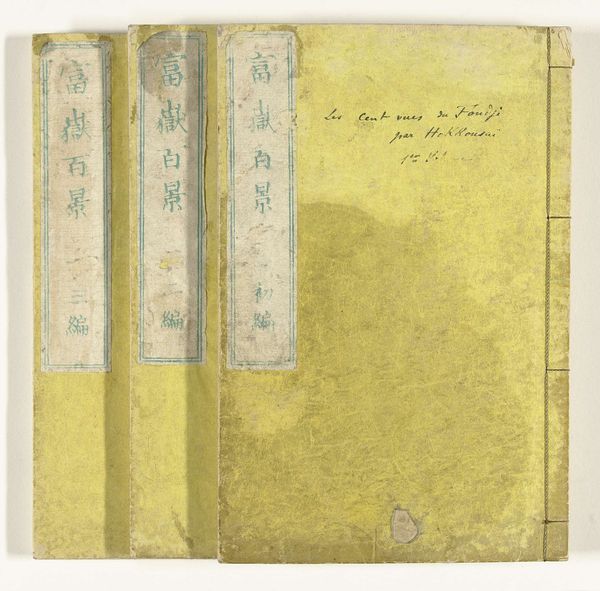 富嶽百景 三編
富嶽百景 二編
富嶽百景 初編
Les cent vues du Foudji
par Hokkousaï
1er